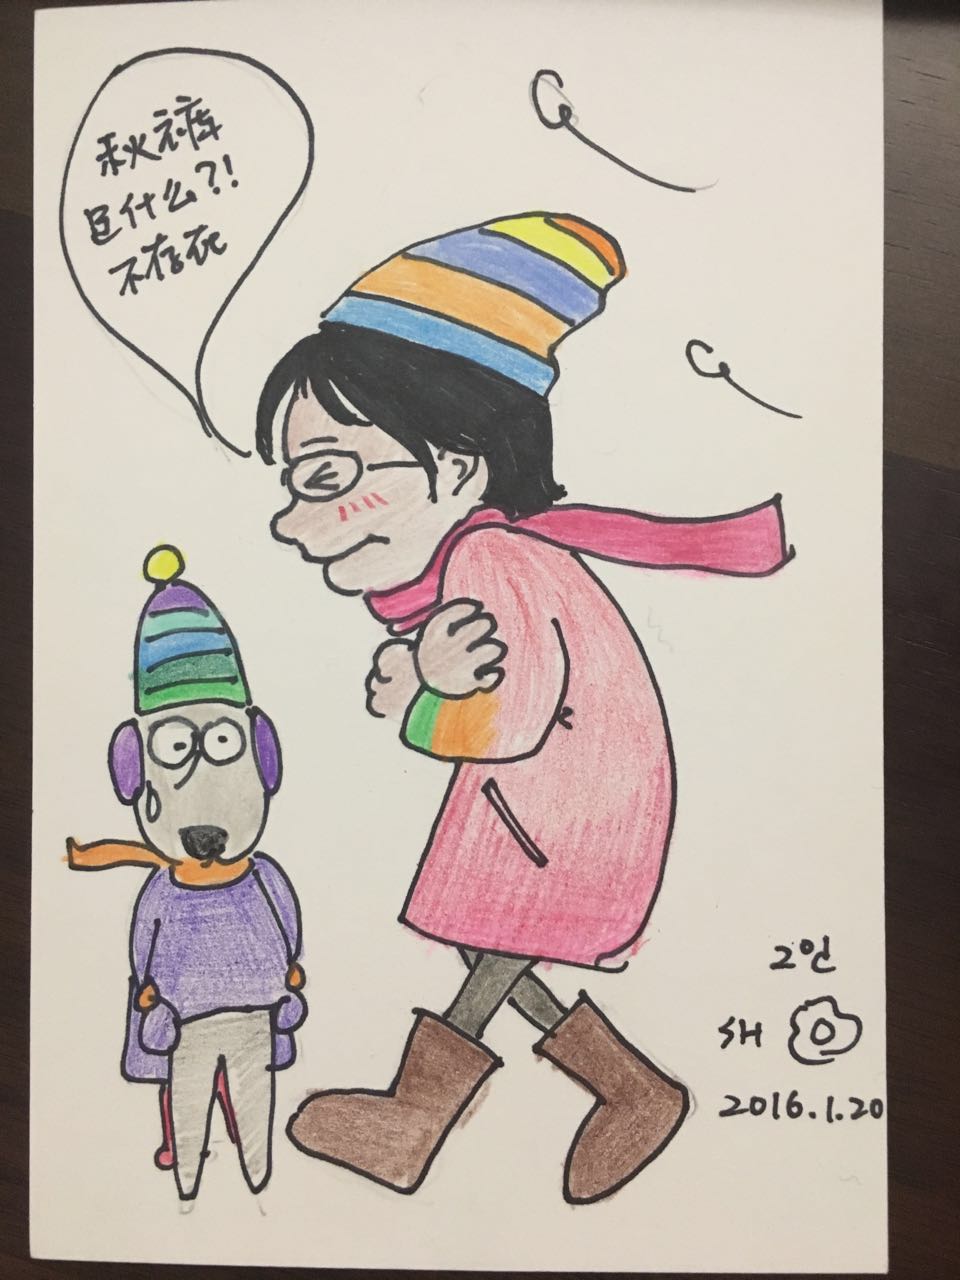 秋裤
是什么?!
不存在
2인
SH
2016.1.20